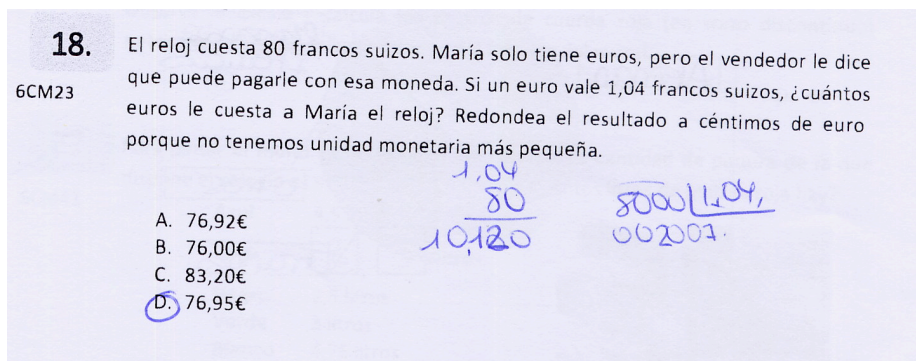 18.
6CM23
El reloj cuesta 80 francos suizos. María solo tiene euros, pero el vendedor le dice
que puede pagarle con esa moneda. Si un euro vale 1,04 francos suizos, ¿cuántos
euros le cuesta a María el reloj? Redondea el resultado a céntimos de euro
porque no tenemos unidad monetaria más pequeña.
1,04
80
8000 1,04,
A. 76,92€
B. 76,00€
C. 83,20€
D. 76,95€